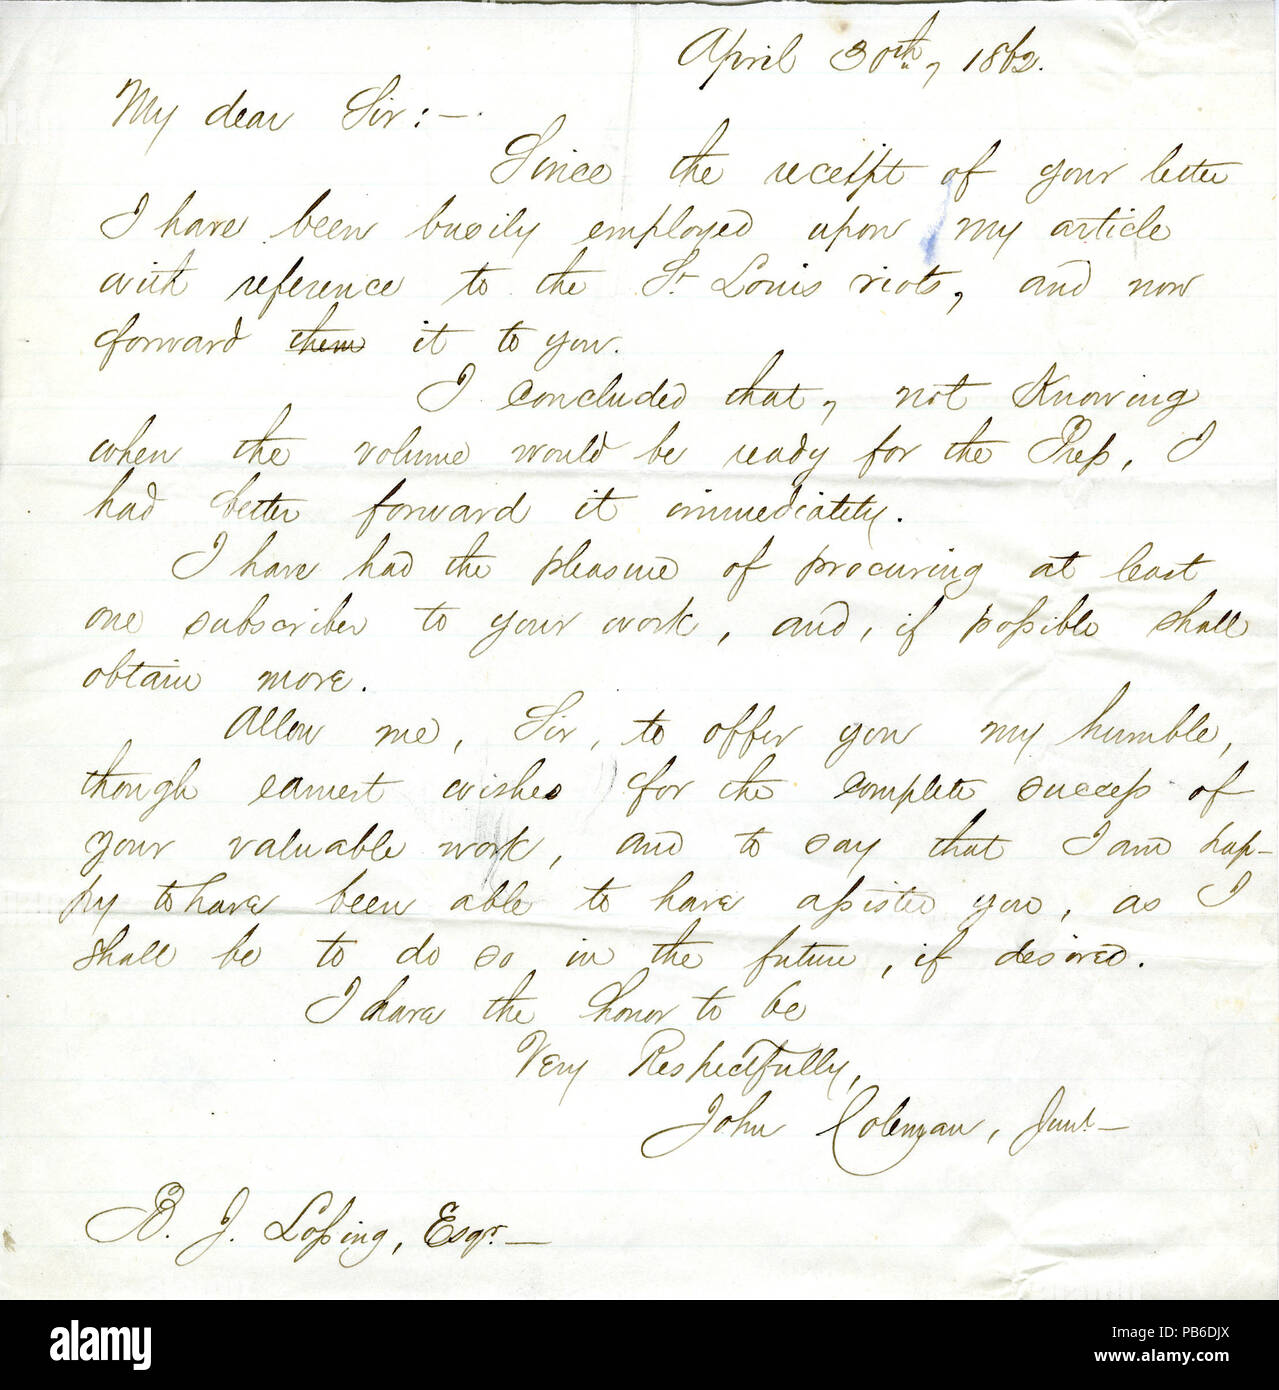 April 30th, 1862.
My dear Sir:—
Since the receipt of your letter
I have been busily employed upon my article
with reference to the St Louis riots, and now
forward them it to you.
I concluded that, not Knowing
when the volume would be ready for the Press, I
had better forward it immediately.
I have had the pleasure of procuring at least
one subscriber to your work, and, if possible shall
obtain more.
Allow me, Sir, to offer you my humble,
though earnest wishes for the complete success of
your valuable work, and to say that I am hap-
py to have been able to have assisted you, as I
shall be to do so in the future, if desired.
I have the honor to be
Very Respectfully,
John Coleman, Junr—
B. J. Lossing, Esqr.—
alamy
Image ID: PB6DJX
www.alamy.com